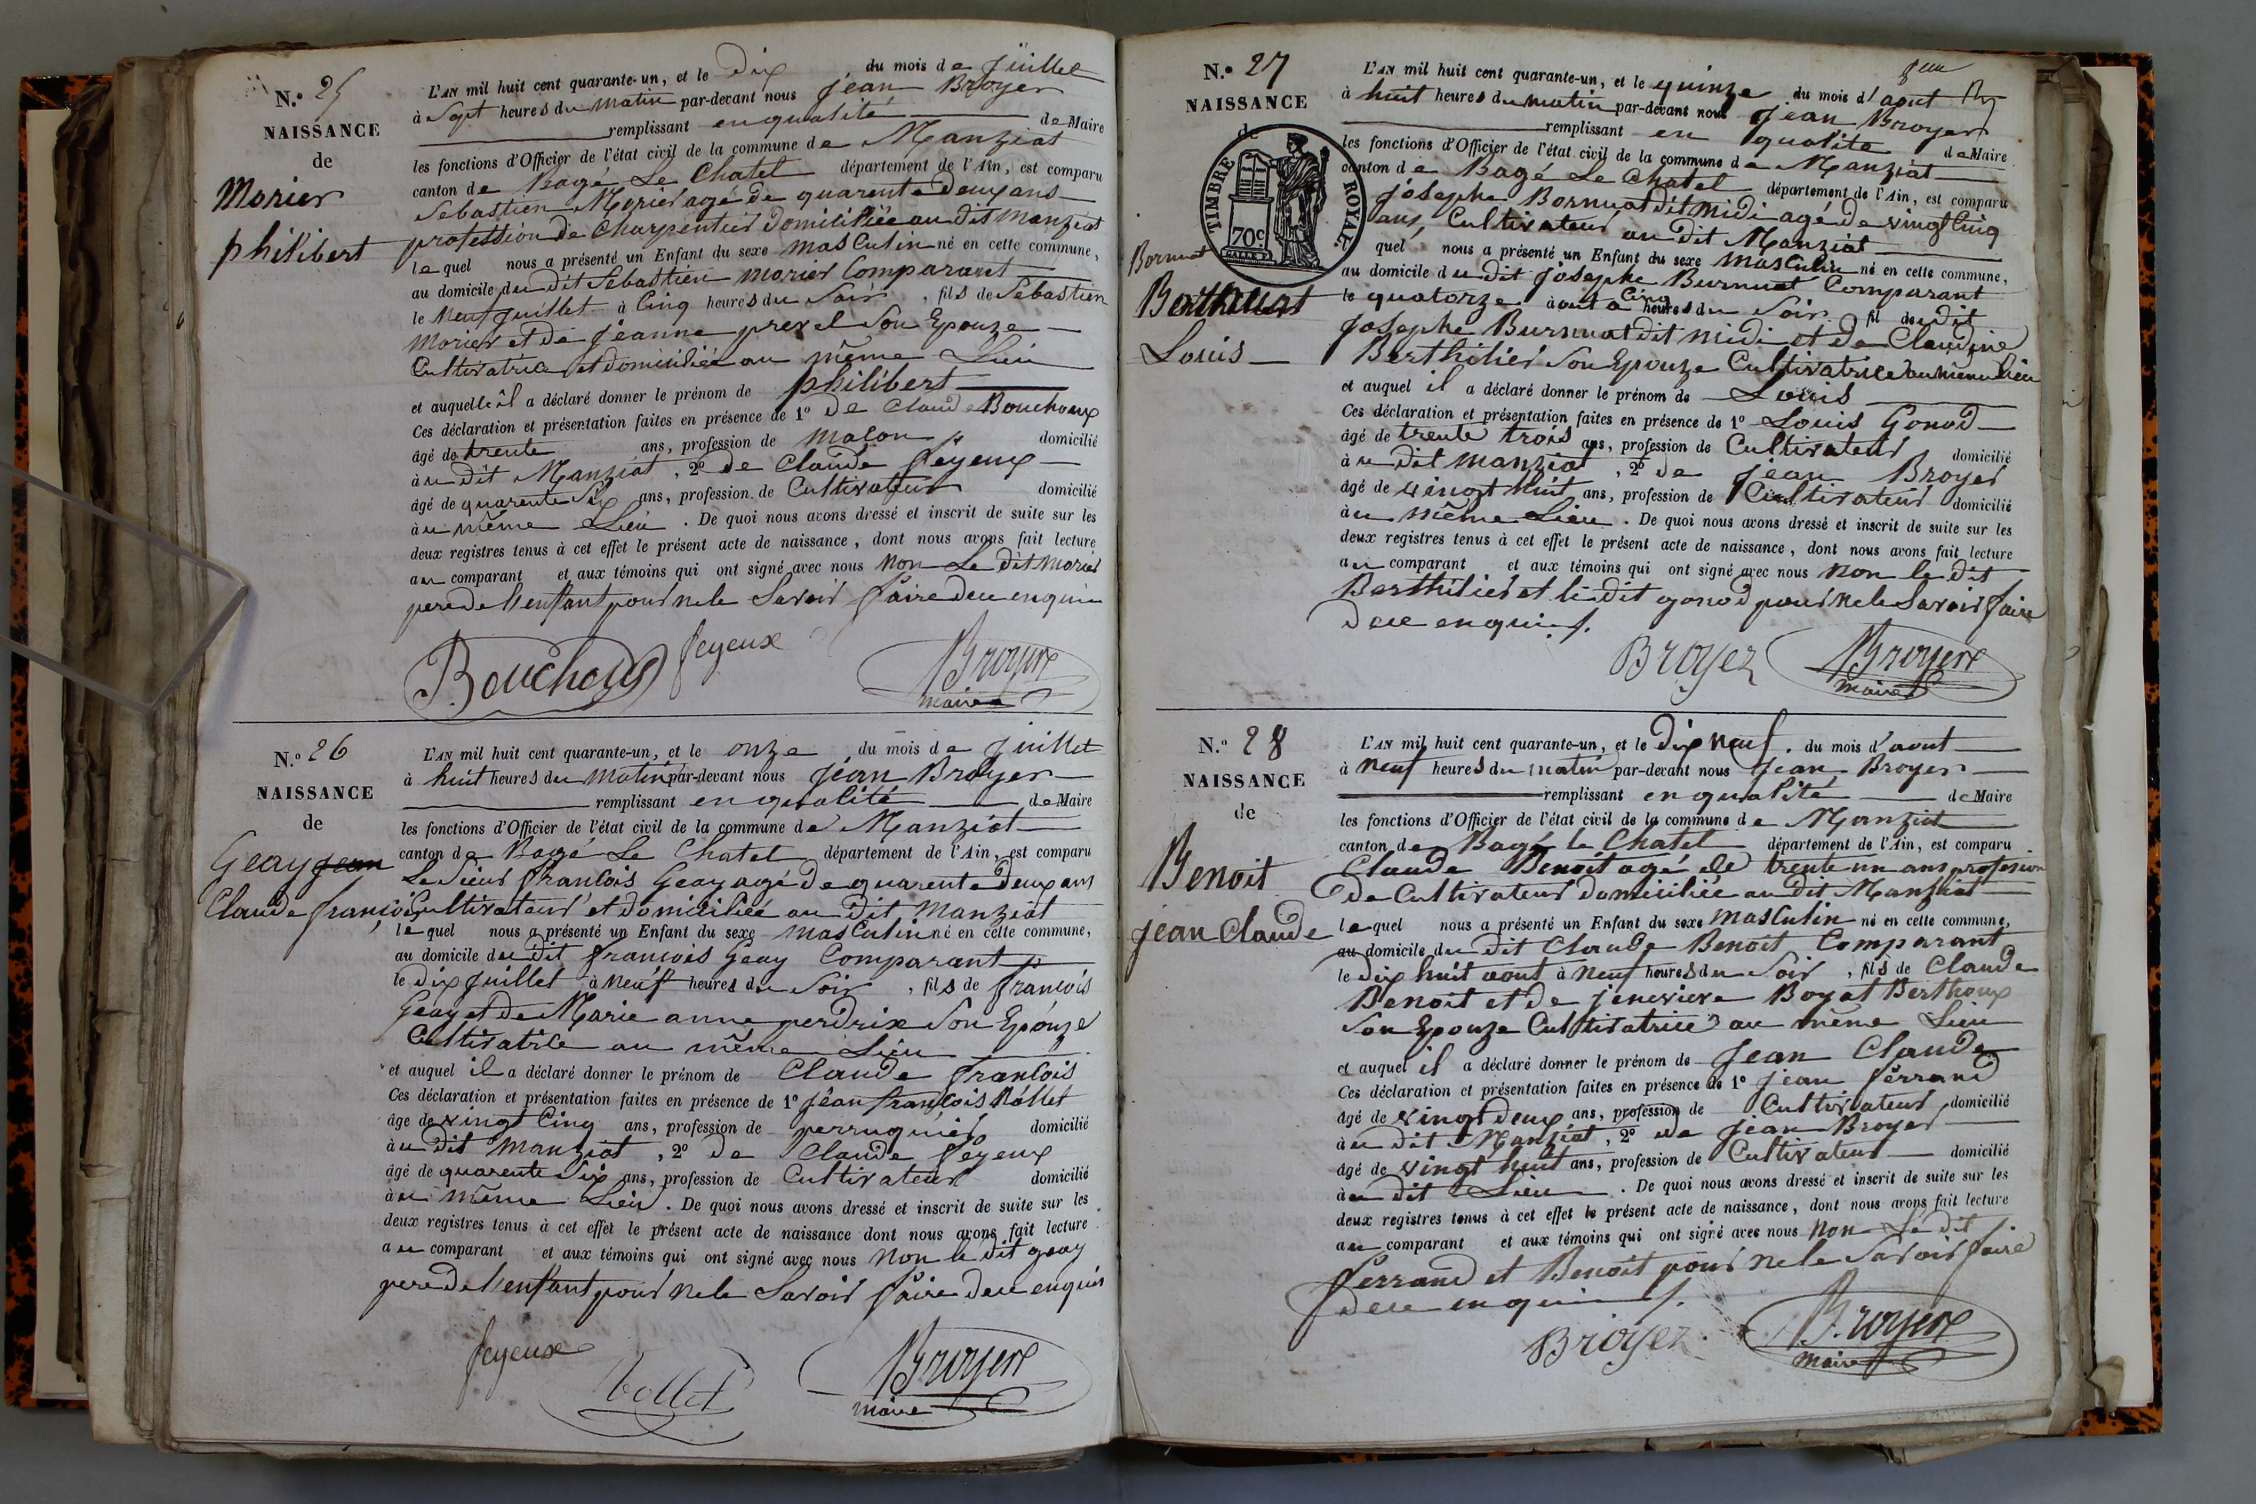 N.º 25
NAISSANCE
de
Morier
philibert
L'AN mil huit cent quarante-un, et le dix du mois de Juillet
à Sept heures du matin par-devant nous jean Broyer
remplissant en qualité de Maire
les fonctions d'Officier de l'état civil de la commune de Manziat
canton de Bagé Le Chatel département de l'Ain, est comparu
Sebastien Morier agé de quarente deux ans
profession de Charpentier domicilliée au dit Manziat
lequel nous a présenté un Enfant du sexe masculin né en cette commune,
au domicile du dit Sebastien morier Comparant
le Neuf juillet à Cinq heures du Soir, fils de Sebastien
morier et de jeanne prevel Son Epouze
Cultivatrice et domiciliée au même Lieu
et auquelle il a déclaré donner le prénom de philibert
Ces déclaration et présentation faites en présence de 1º de Claude Bouchoux
âgé de trente ans, profession de maçon domicilié
à u dit Manziat, 2º de Claude feyeux
âgé de quarente Six ans, profession de Cultivateur domicilié
à u même Lieu. De quoi nous avons dressé et inscrit de suite sur les
deux registres tenus à cet effet le présent acte de naissance, dont nous avons fait lecture
au comparant et aux témoins qui ont signé avec nous Non Le dit morier
pere de l'enfant pour ne le Savoir faire deu enquis
Bouchoux feyeux Broyer
maire
N.º 26
NAISSANCE
de
Geay jean
Claude françois
L'AN mil huit cent quarante-un, et le onze du mois de juillet
à huit heures du matin par-devant nous jean Broyer
remplissant en qualité de Maire
les fonctions d'Officier de l'état civil de la commune de Manziat
canton de Bagé Le Chatel département de l'Ain, est comparu
Le Sieur francois Geay agé de quarente deux ans
Cultivateur et domiciliée au dit Manziat
lequel nous a présenté un Enfant du sexe masculin né en cette commune,
au domicile du dit francois Geay Comparant
le dix juillet à neuf heures du Soir, fils de francois
Geay et de Marie anne perdrix Son Epouze
Cultivatrice au même Lieu
et auquel il a déclaré donner le prénom de Claude francois
Ces déclaration et présentation faites en présence de 1º jean françois Vollet
âgé de vingt Cinq ans, profession de perruquier domicilié
à u dit manziat, 2º de Claude feyeux
âgé de quarente Six ans, profession de Cultivateur domicilié
à u même Lieu. De quoi nous avons dressé et inscrit de suite sur les
deux registres tenus à cet effet le présent acte de naissance dont nous avons fait lecture
au comparant et aux témoins qui ont signé avec nous Non le dit geay
pere de l'enfant pour ne le Savoir faire deu enquis
feyeux Vollet Broyer
maire
N.º 27
NAISSANCE
de
TIMBRE ROYAL.
70c
Bornuat
Louis
L'AN mil huit cent quarante-un, et le quinze du mois d'aout
à huit heures du matin par-devant nous jean Broyer
remplissant en qualite de Maire
les fonctions d'Officier de l'état civil de la commune de Manziat
canton de Bagé Le Chatel département de l'Ain, est comparu
josephe Bornuat dit midi agé de vingt Cinq
ans, Cultivateur au dit Manziat
quel nous a présenté un Enfant du sexe masculin né en cette commune,
au domicile du dit josephe Burnuat Comparant
le quatorze aout à Cinq heures du Soir fil du dit
Josephe Burnuat dit midi et de Claudine
Berthilier Son Epouze Cultivatrice au même lieu
et auquel il a déclaré donner le prénom de Louis
Ces déclaration et présentation faites en présence de 1º Louis Gonod
âgé de trente trois ans, profession de Cultivateur domicilié
à u dit manziat, 2º de jean Broyer
âgé de vingt huit ans, profession de Cultivateur domicilié
à u même Lieu. De quoi nous avons dressé et inscrit de suite sur les
deux registres tenus à cet effet le présent acte de naissance, dont nous avons fait lecture
au comparant et aux témoins qui ont signé avec nous Non le dit
Berthilier et le dit gonod pour ne le Savoir faire
deu enquis
Broyer Broyer
maire
N.º 28
NAISSANCE
de
Benoit
jean Claude
L'AN mil huit cent quarante-un, et le dix neuf. du mois d'aout
à neuf heures du matin par-devant nous jean Broyer
remplissant en qualité de Maire
les fonctions d'Officier de l'état civil de la commune de Manziat
canton de Bagé le Chatel département de l'Ain, est comparu
Claude Benoit agé de trente un ans profession
de Cultivateur domiciliée au dit Manziat
lequel nous a présenté un Enfant du sexe masculin né en cette commune,
au domicile du dit Claude Benoit Comparant
le dix huit aout à neuf heures du Soir, fils de Claude
Benoit et de jenevieve Boyat Berthoux
Son Epouze Cultivatrice au même Lieu
et auquel il a déclaré donner le prénom de Jean Claude
Ces déclaration et présentation faites en présence de 1º jean ferrand
âgé de vingt deux ans, profession de Cultivateur domicilié
à u dit Manziat, 2º de jean Broyer
âgé de vingt huit ans, profession de Cultivateur domicilié
à u dit Lieu. De quoi nous avons dressé et inscrit de suite sur les
deux registres tenus à cet effet le présent acte de naissance, dont nous avons fait lecture
au comparant et aux témoins qui ont signé avec nous Non Le dit
ferrand et Benoit pour ne le Savoir faire
deu enquis
Broyer Broyer
maire